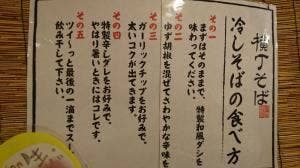 横丁そば
冷しそばの食べ方
その一
まずはそのままで、特製和風ダシを
味わってください。
その二
ゆず胡椒を混ぜてさわやかな辛味を
その三
ガーリックチップをお好みで、
太いコクが出てきます。
その四
特製辛しダレをお好みで、
やはり暑いときにはコレです。
その五
ツイ〜っと最後の一滴までスー
飲み干して下さい。